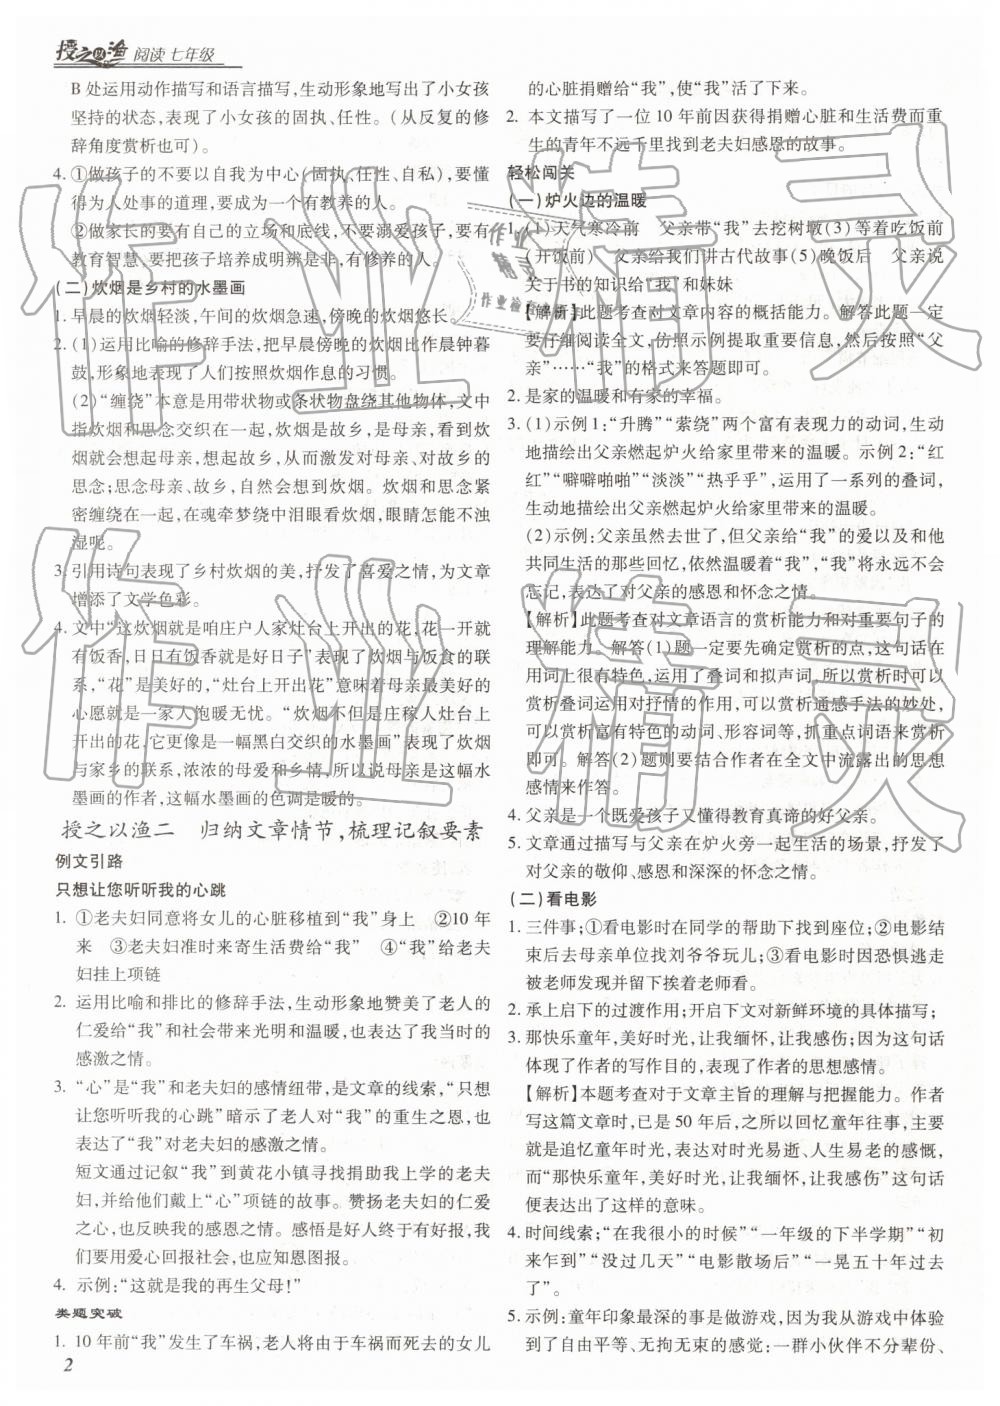 授之以渔 阅读 七年级
B 处运用动作描写和语言描写,生动形象地写出了小女孩
坚持的状态,表现了小女孩的固执、任性。(从反复的修
辞角度赏析也可)。
4. ①做孩子的不要以自我为中心(固执、任性、自私),要懂
得为人处事的道理,要成为一个有教养的人。
②做家长的要有自己的立场和底线,不要溺爱孩子,要有
教育智慧,要把孩子培养成明辨是非,有修养的人。
(二)炊烟是乡村的水墨画
1. 早晨的炊烟轻淡,午间的炊烟急速,傍晚的炊烟悠长。
2. (1)运用比喻的修辞手法,把早晨傍晚的炊烟比作晨钟暮
鼓,形象地表现了人们按照炊烟作息的习惯。
(2)“缠绕”本意是用带状物或条状物盘绕其他物体,文中
指炊烟和思念交织在一起,炊烟是故乡,是母亲,看到炊
烟就会想起母亲,想起故乡,从而激发对母亲、对故乡的
思念;思念母亲、故乡,自然会想到炊烟。炊烟和思念紧
密缠绕在一起,在魂牵梦绕中泪眼看炊烟,眼睛怎能不浊
湿呢。
3. 引用诗句表现了乡村炊烟的美,抒发了喜爱之情,为文章
增添了文学色彩。
4. 文中“这炊烟就是咱庄户人家灶台上开出的花,花一开就
有饭香,日日有饭香就是好日子”表现了炊烟与饭食的联
系,“花”是美好的,“灶台上开出花”意味着母亲最美好的
心愿就是一家人饱暖无忧。“炊烟不但是庄稼人灶台上
开出的花,它更像是一幅黑白交织的水墨画”表现了炊烟
与家乡的联系,浓浓的母爱和乡情,所以说母亲是这幅水
墨画的作者,这幅水墨画的色调是暖的。
授之以渔二 归纳文章情节,梳理记叙要素
例文引路
只想让您听听我的心跳
1. ①老夫妇同意将女儿的心脏移植到“我”身上 ②10 年
来 ③老夫妇准时来寄生活费给“我” ④“我”给老夫
妇挂上项链
2. 运用比喻和排比的修辞手法,生动形象地赞美了老人的
仁爱给“我”和社会带来光明和温暖,也表达了我当时的
感激之情。
3. “心”是“我”和老夫妇的感情纽带,是文章的线索,“只想
让您听听我的心跳”暗示了老人对“我”的重生之恩,也
表达了“我”对老夫妇的感激之情。
短文通过记叙“我”到黄花小镇寻找捐助我上学的老夫
妇,并给他们戴上“心”项链的故事。赞扬老夫妇的仁爱
之心,也反映我的感恩之情。感悟是好人终于有好报,我
们要用爱心回报社会,也应知恩图报。
4. 示例:“这就是我的再生父母!”
类题突破
1. 10 年前“我”发生了车祸,老人将由于车祸而死去的女儿
2
的心脏捐赠给“我”,使“我”活了下来。
2. 本文描写了一位 10 年前因获得捐赠心脏和生活费而重
生的青年不远千里找到老夫妇感恩的故事。
轻松闯关
(一)炉火边的温暖
1. (1)天气寒冷前 父亲带“我”去挖树墩(3)等着吃饭前
(开饭前) 父亲给我们讲古代故事(5)晚饭后 父亲说
关于书的知识给“我”和妹妹
【解析】此题考查对文章内容的概括能力。解答此题一定
要仔细阅读全文,仿照示例提取重要信息,然后按照“父
亲”……“我”的格式来答题即可。
2. 是家的温暖和有家的幸福。
3. (1)示例 1:“升腾”“萦绕”两个富有表现力的动词,生动
地描绘出父亲燃起炉火给家里带来的温暖。示例 2:“红
红”“噼噼啪啪”“淡淡”“热乎乎”,运用了一系列的叠词,
生动地描绘出父亲燃起炉火给家里带来的温暖。
(2)示例:父亲虽然去世了,但父亲给“我”的爱以及和他
共同生活的那些回忆,依然温暖着“我”,“我”将永远不会
忘记,表达了对父亲的感恩和怀念之情。
【解析】此题考查对文章语言的赏析能力和对重要句子的
理解能力。解答(1)题一定要先确定赏析的点,这句话在
用词上很有特色,运用了叠词和拟声词,所以赏析时可以
赏析叠词运用对抒情的作用,可以赏析通感手法的妙处,
可以赏析富有特色的动词、形容词等,抓重点词语来赏析
即可。解答(2)题则要结合作者在全文中流露出的思想
感情来作答。
4. 父亲是一个既爱孩子又懂得教育真谛的好父亲。
5. 文章通过描写与父亲在炉火旁一起生活的场景,抒发了
对父亲的敬仰、感恩和深深的怀念之情。
(二)看电影
1. 三件事;①看电影时在同学的帮助下找到座位;②电影结
束后去母亲单位找刘爷爷玩儿;③看电影时因恐惧逃走
被老师发现并留下挨着老师看。
2. 承上启下的过渡作用;开启下文对新鲜环境的具体描写;
3. 那快乐童年,美好时光,让我缅怀,让我感伤;因为这句话
体现了作者的写作目的,表现了作者的思想感情。
【解析】本题考查对于文章主旨的理解与把握能力。作者
写这篇文章时,已是 50 年后,之所以回忆童年往事,主要
就是追忆童年时光,表达对时光易逝、人生易老的感慨,
而“那快乐童年,美好时光,让我缅怀,让我感伤”这句话
便表达出了这样的意味。
4. 时间线索;“在我很小的时候”“一年级的下半学期”“初
来乍到”“没过几天”“电影散场后”“一晃五十年过去
了”。
5. 示例:童年印象最深的事是做游戏,因为我从游戏中体验
到了自由平等、无拘无束的感觉;一群小伙伴不分辈份、
作业精灵
作业精灵
作业
精灵